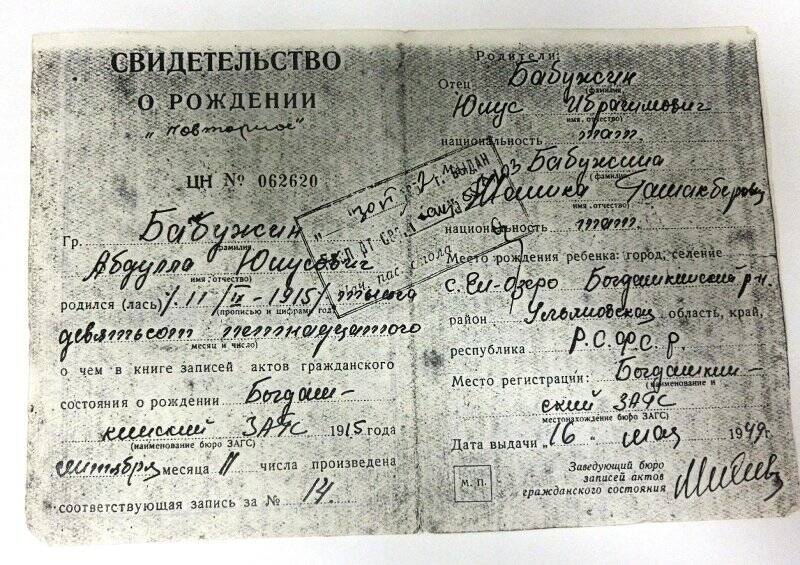 СВИДЕТЕЛЬСТВО
О РОЖДЕНИИ
"повторное"
ЦН № 062620
Гр. Бабужин
фамилия
Абдулла Юнусович
(имя, отчество)
родился (лась) 11/IX-1915/ тысяча
(прописью и цифрами год,
девятьсот пятнадцатого
месяц и число)
о чем в книге записей актов гражданского
состояния о рождении Богдаш-
кинский ЗАГС 1915 года
(наименование бюро ЗАГС)
сентября месяца 11 числа произведена
соответствующая запись за № 14.
Родители:
Отец Бабужин
(фамилия,
Юнус Ибрагимович
имя, отчество)
национальность тат.
Бабужина
(фамилия,
имя, отчество)
национальность тат.
Место рождения ребенка: город, селение
с. Ел-Озеро Богдашкинский р-н.
район Ульяновской область, край,
республика Р.С.Ф.С.Р.
Место регистрации: Богдашкин-
(наименование и
ский ЗАГС
местонахождение бюро ЗАГС)
Дата выдачи "16" мая 1949г.
М. П.
Заведующий бюро
записей актов
гражданского состояния
ВЫДАН